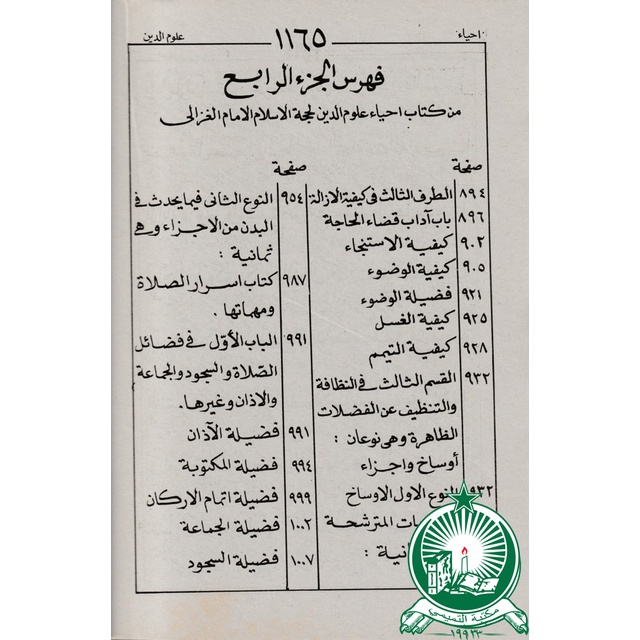 احياء ١١٦٥ علوم الدين
فهرس الجزء الرابع
من كتاب احياء علوم الدين لحجة الاسلام الامام الغزالى
صفحة
٨٩٤ الطرف الثالث فى كيفية الازالة
٨٩٦ باب آداب قضاء الحاجة
٩٠٢ كيفية الاستنجاء
٩٠٥ كيفية الوضوء
٩٢١ فضيلة الوضوء
٩٢٥ كيفية الغسل
٩٢٨ كيفية التيمم
٩٣٢ القسم الثالث فى النظافة
والتنظيف عن الفضلات
الظاهرة وهى نوعان :
أوساخ واجزاء
٩٣٢ النوع الاول الاوساخ
المترشحة
:
صفحة
٩٥٤ النوع الثانى فيما يحدث فى
البدن من الاجزاء وهى
ثمانية :
٩٨٧ كتاب اسرار الصلاة
ومهماتها .
٩٩١ الباب الأوّل فى فضائل
الصّلاة والسجود والجماعة
والاذان وغيرها.
٩٩١ فضيلة الآذان
٩٩٤ فضيلة المكتوبة
٩٩٩ فضيلة اتمام الاركان
١٠٠٢ فضيلة الجماعة
١٠٠٧ فضيلة السجود
مكتبة التميمي
١٩٩٣